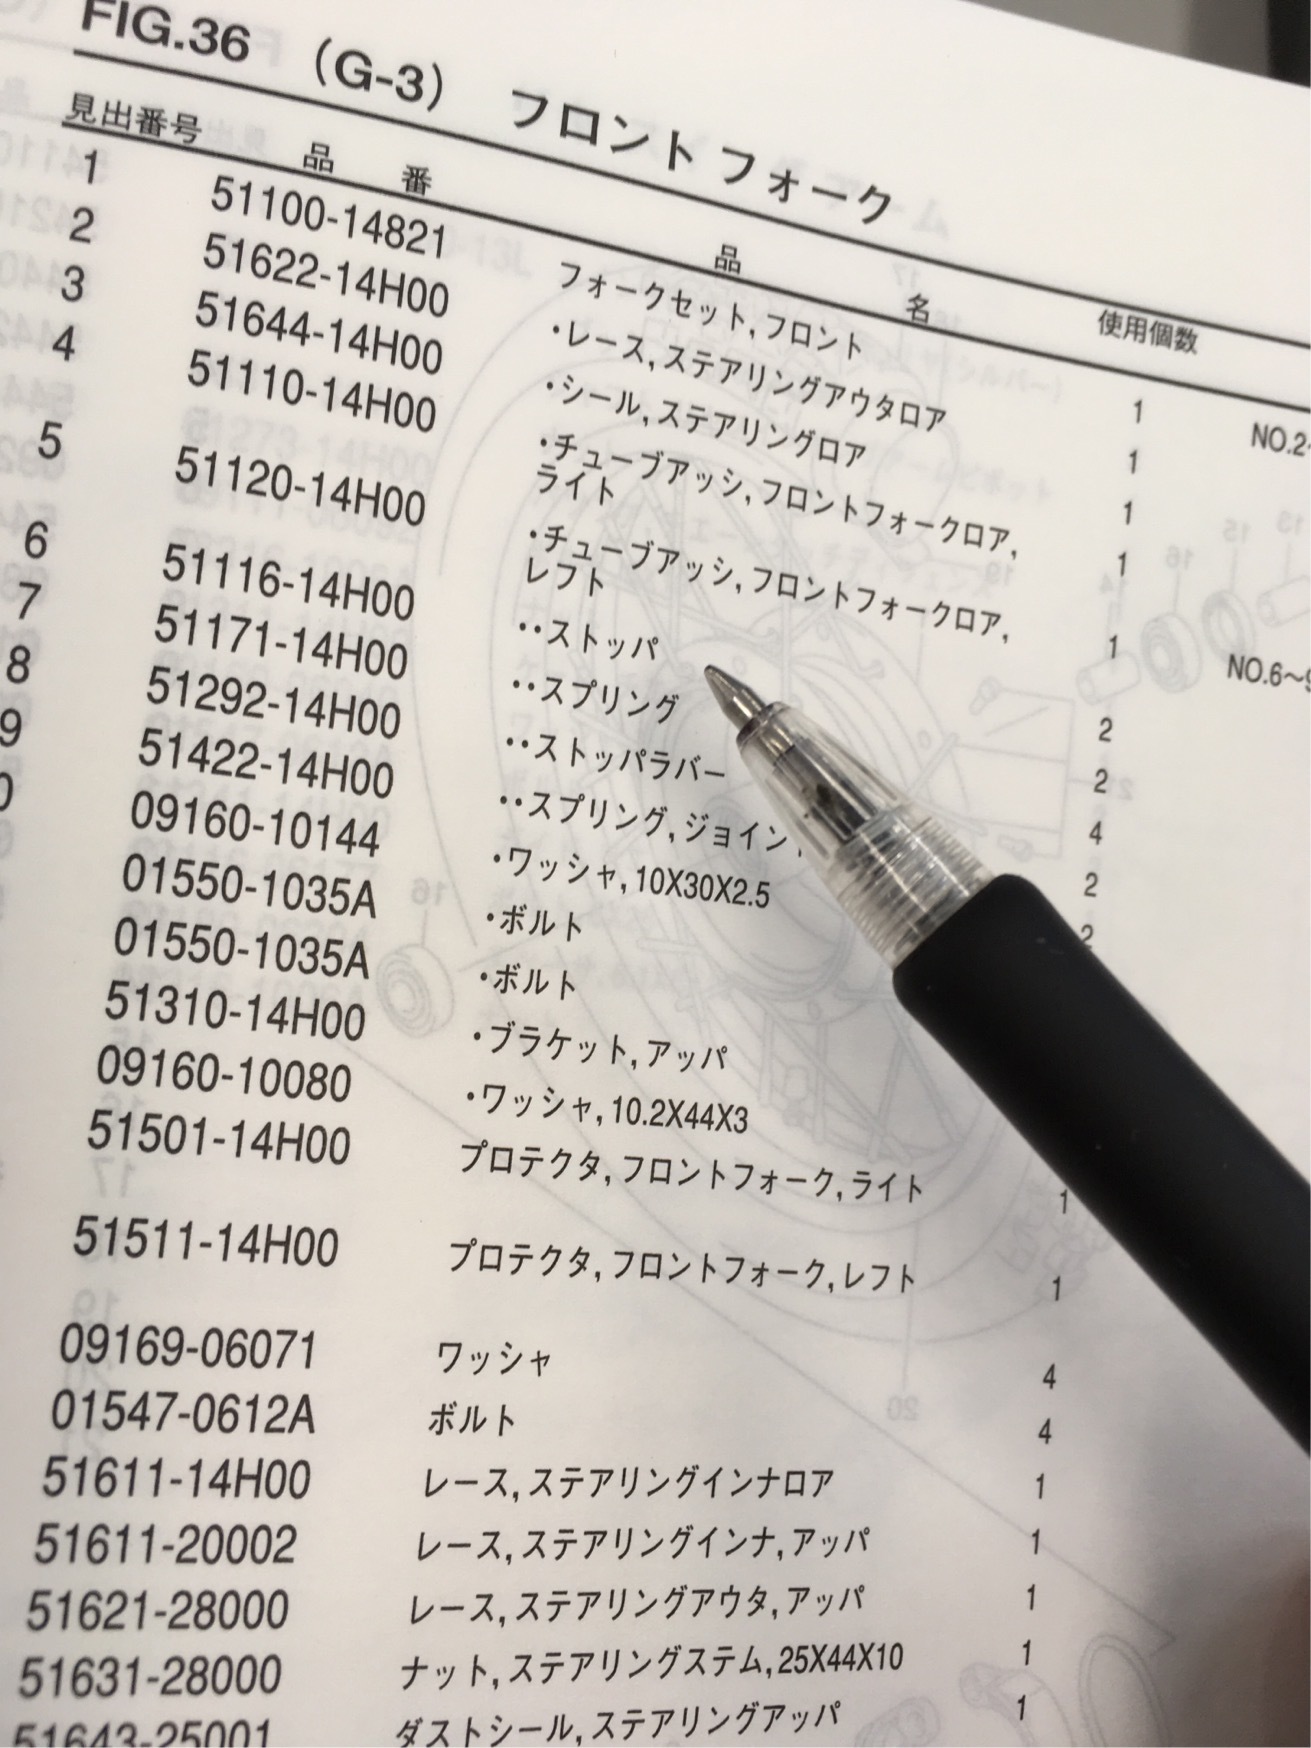 FIG.36 (G-3) フロントフォーク
見出番号 品 番 品 名 使用個数
1 51100-14821 フォークセット,フロント 1 NO.2
2 51622-14H00 ・レース,ステアリングアウタロア 1
3 51644-14H00 ・シール,ステアリングロア 1
4 51110-14H00 ・チューブアッシ,フロントフォークロア, 1
ライト
5 51120-14H00 ・チューブアッシ,フロントフォークロア, 1 NO.6〜9
レフト
6 51116-14H00 ・・ストッパ 2
7 51171-14H00 ・・スプリング 2
8 51292-14H00 ・・ストッパラバー 4
9 51422-14H00 ・・スプリング,ジョイン 2
0 09160-10144 ・ワッシャ,10X30X2.5 2
01550-1035A ・ボルト
01550-1035A ・ボルト
51310-14H00 ・ブラケット,アッパ
09160-10080 ・ワッシャ,10.2X44X3
51501-14H00 プロテクタ,フロントフォーク,ライト 1
51511-14H00 プロテクタ,フロントフォーク,レフト 1
09169-06071 ワッシャ 4
01547-0612A ボルト 4
51611-14H00 レース,ステアリングインナロア 1
51611-20002 レース,ステアリングインナ,アッパ 1
51621-28000 レース,ステアリングアウタ,アッパ 1
51631-28000 ナット,ステアリングステム,25X44X10 1
51643-25001 ダストシール,ステアリングアッパ 1